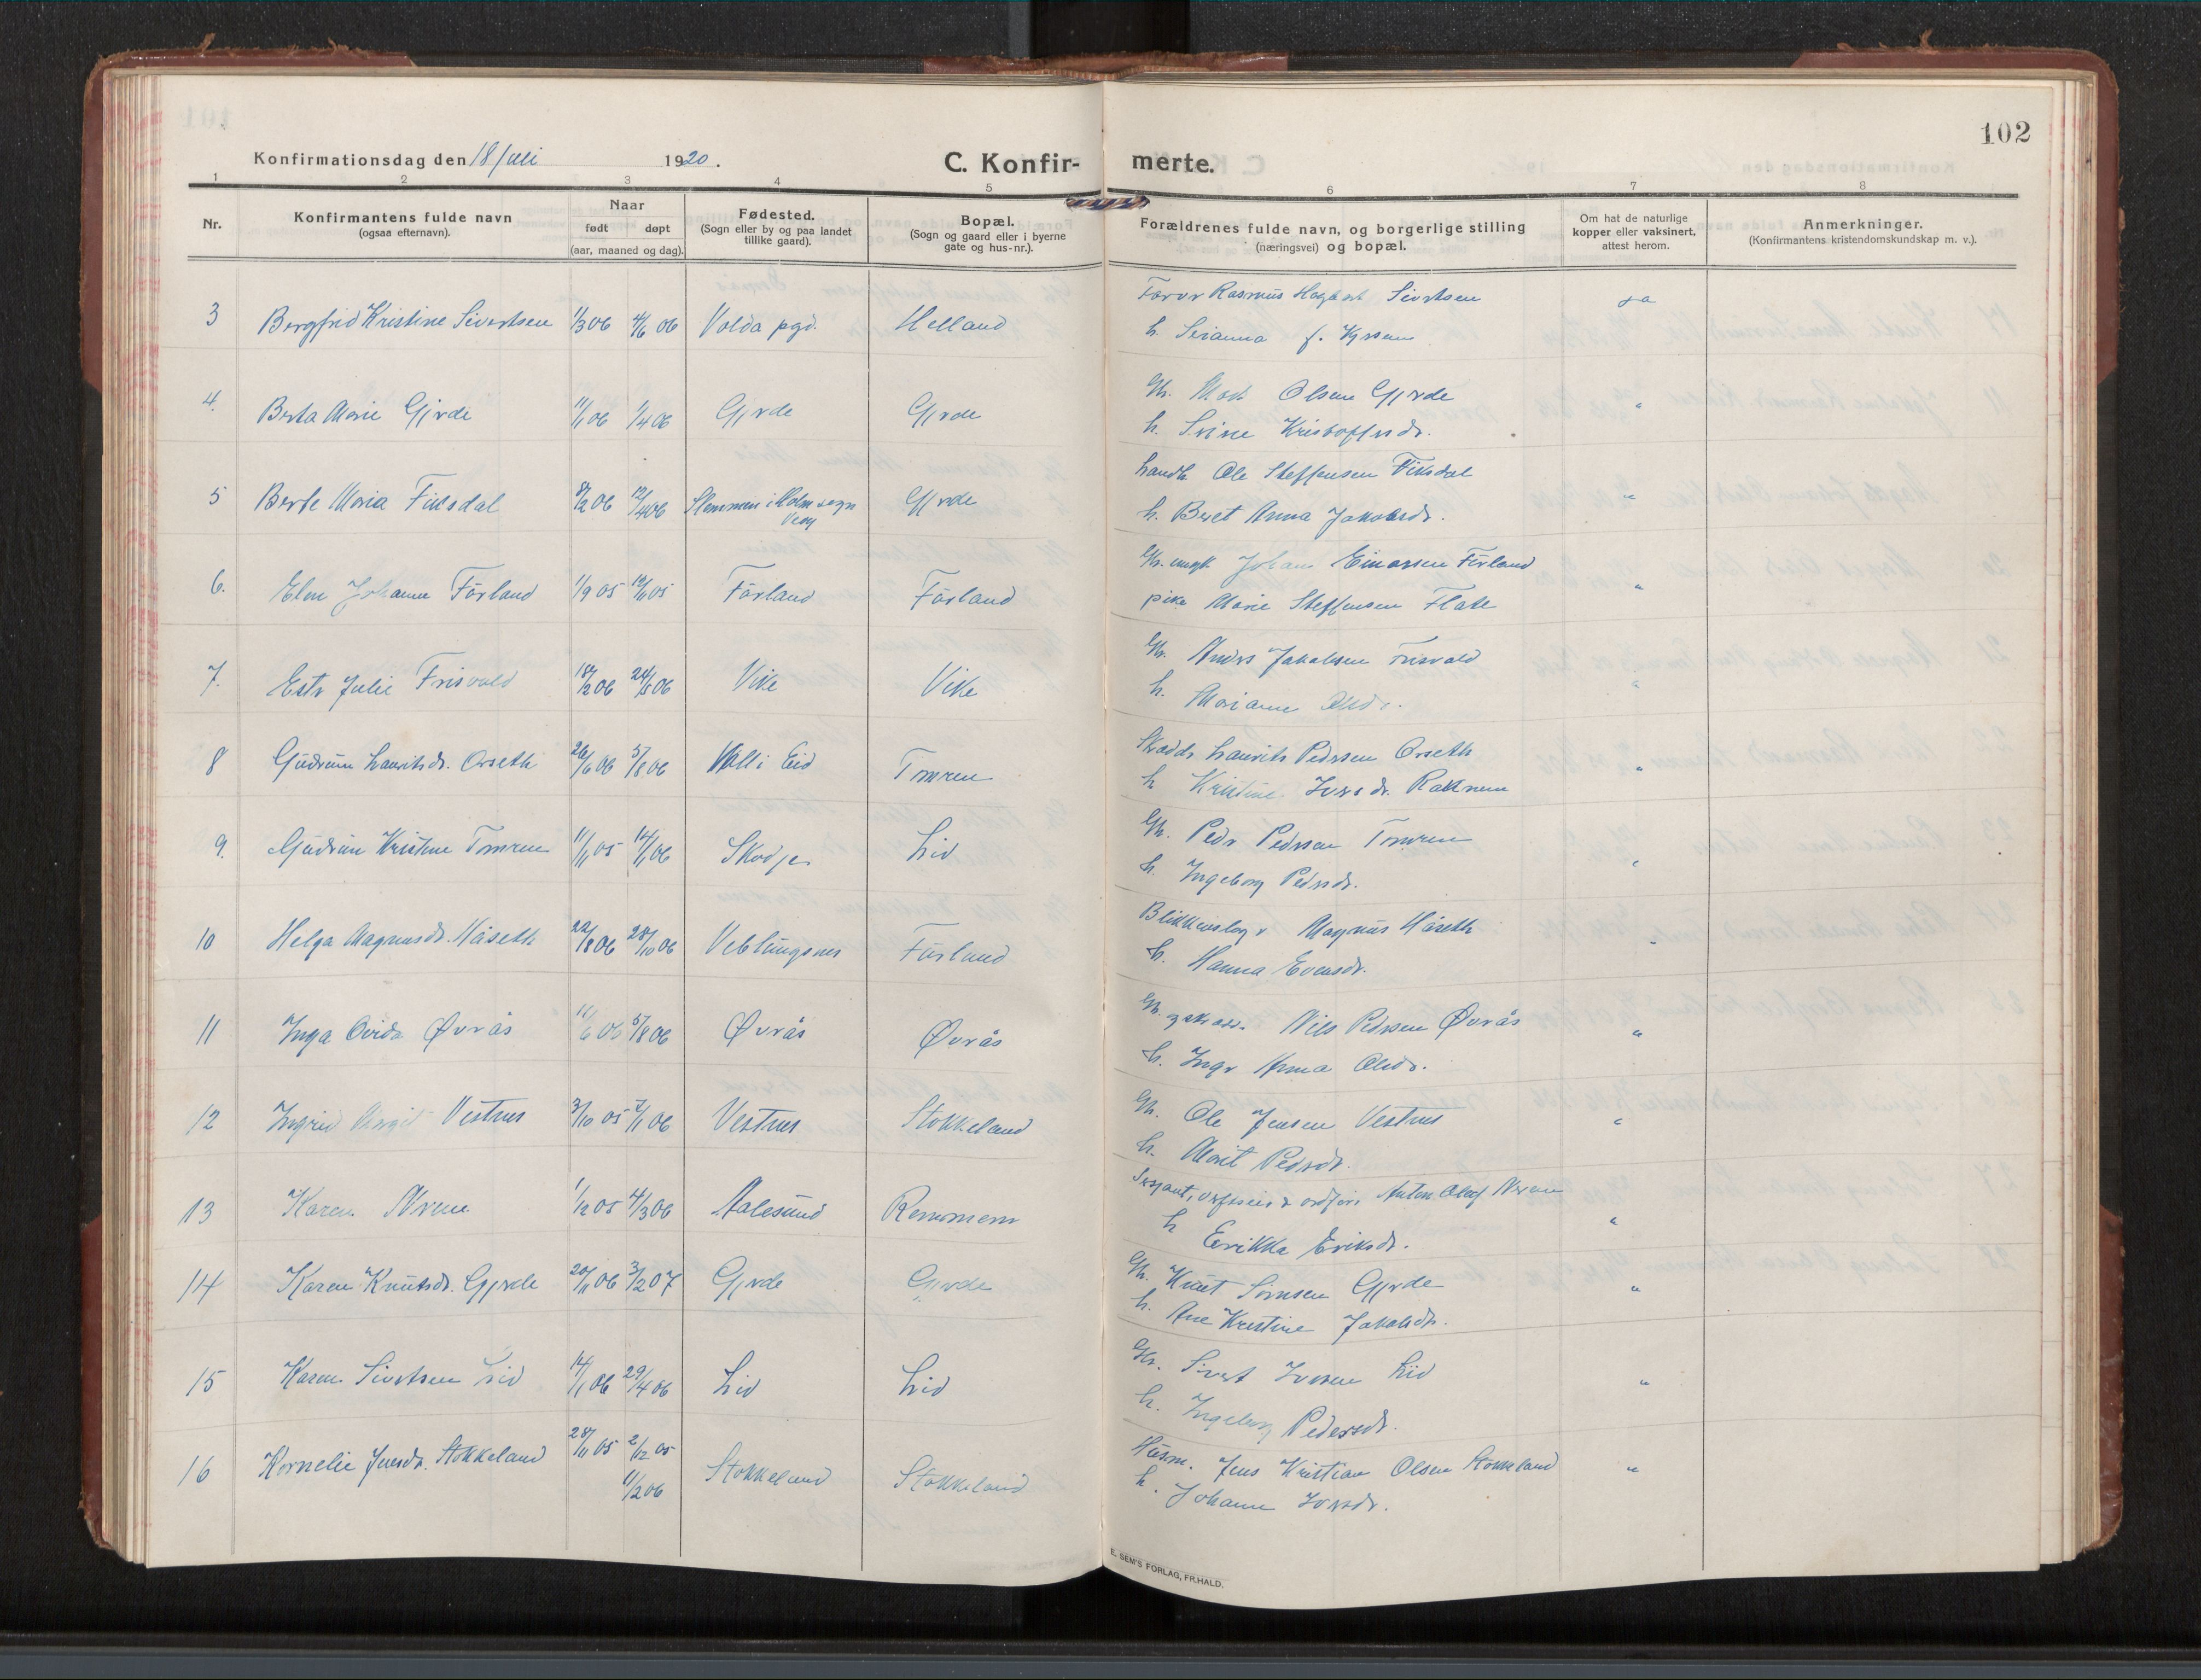 102
Konfirmationsdag den 18 Juli 1920.
C. Konfir- merte.
1 2 3 4 5 6 7 8
Nr.
Konfirmantens fulde navn
(ogsaa efternavn).
Naar
født døpt
(aar, maaned og dag).
Fødested.
(Sogn eller by og paa landet
tillike gaard).
Bopæl.
(Sogn og gaard eller i byerne
gate og hus-nr.).
Forældrenes fulde navn, og borgerlige stilling
(næringsvei) og bopæl.
Om hat de naturlige
kopper eller vaksinert,
attest herom.
Anmerkninger.
(Konfirmantens kristendomskundskap m. v.).
3 Bergfrid Kristine Sivertsen 1/3 06 4/6 06 Volda pgd. Helland Rasmus Sivertsen ja
h. f.
4. Berta Marie Gjerde 11/1 06 1/4 06 Gjerde Gjerde Gbr. Olsen Gjerde "
h. Kristoffersdr.
5 Berte Maria Fiksdal 8/2 06 12/4 06 Slemmen i Holm sogn Gjerde handl. Ole Steffensen Fiksdal "
Veøy
h. Beret Anna Jakobsdr.
6. Johanne Förland 1/9 05 12/11 05 Förland Förland Gbr. ungk. Johans Einarsen Förland "
pike Marie Steffensen Flate
7. Ester Julie Frisvold 18/2 06 24/5 06 Vike Vike Gbr. Anders Jakobsen Frisvold "
h. Marianne Olsdr.
8 Gudrun Lauritsdr. Orseth 26/6 06 5/8 06 Voll i Eid Tomren Skredder Laurits Pedersen Orseth "
h Kristine Iversdr. Raknem
9. Gudrun Kristine Tomren 11/11 05 14/1 06 Skodje Lid Gbr. Peder Pedersen Tomren "
h. Ingeborg Pedersdr.
10 Helga Magnusdr. Håseth 22/8 06 28/10 06 Veblungsnes Förland Blikkenslager Magnus Håseth "
h. Hanna Evensdr.
11 Inga Ovida Øverås 11/6 06 5/8 06 Øverås Øverås Gbr. Nils Pedersen Øverås "
h. Inger Anna Olsdr.
12 Ingrid Vestnes 3/10 05 7/1 06 Vestnes Stokkeland Gbr. Ole Jensen Vestnes "
h. Marit Pedersdr.
13 Karen Nerem 1/12 05 4/3 06 Aalesund Remmem Sersjant, Anton Olaf Nerem "
h Erikka Eriksdr.
14 Karen Knutsdr. Gjerde 20/11 06 3/2 07 Gjerde Gjerde Gbr. Knut Sørensen Gjerde "
h. Ane Kristine Jakobsdr.
15 Karen Sivertsen Lid 14/1 06 29/4 06 Lid Lid Gbr. Sivert Iversen Lid "
h. Ingeborg Pedersdr.
16 Kornelie Jensdr. Stokkeland 28/11 05 2/12 05 Stokkeland Stokkeland Husm. Jens Kristian Olsen Stokkeland "
11/2 06
h. Johanne Iversdr.
E. SEM'S FORLAG, FR.HALD.